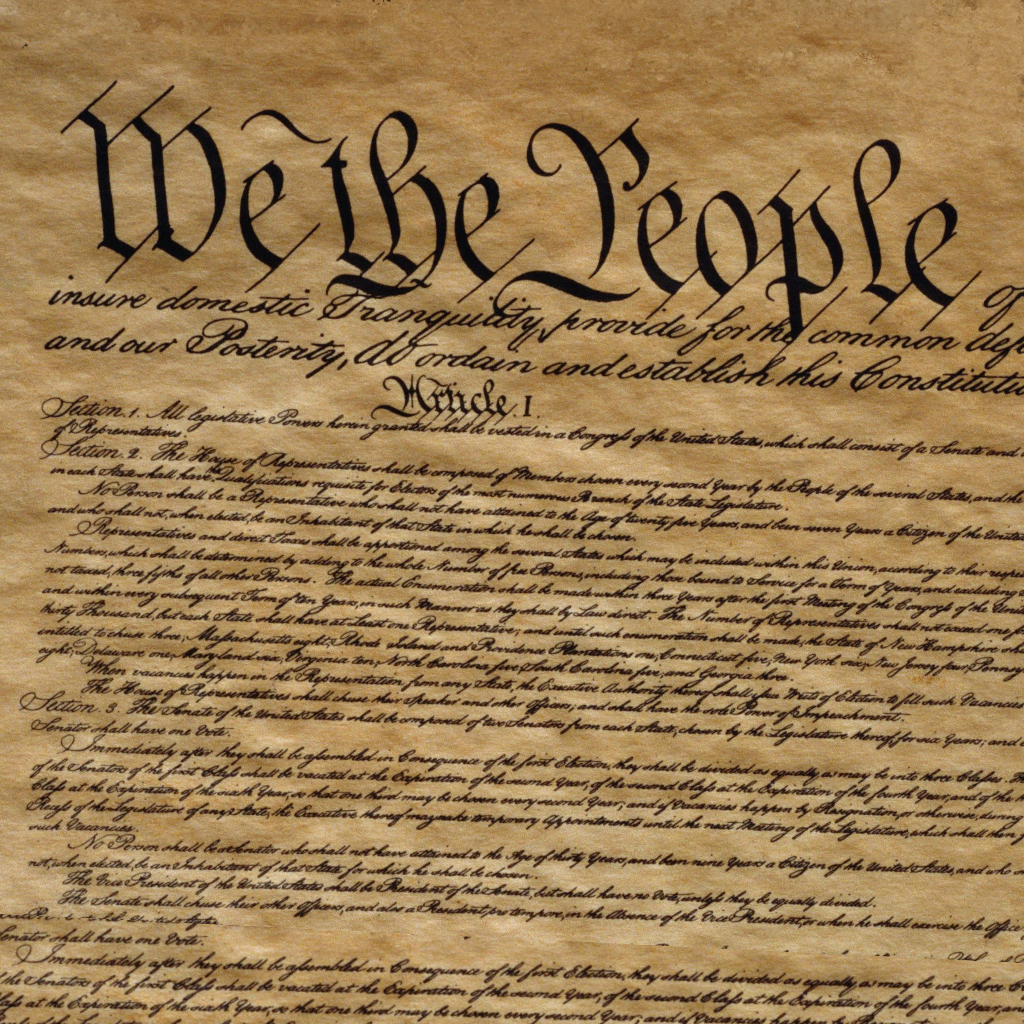 We the People of
insure domestic Tranquility, provide for the common defe
and our Posterity, do ordain and establish this Constitutio
Article. I.
Section. 1. All legislative Powers herein granted shall be vested in a Congress of the United States, which shall consist of a Senate and
of Representatives.
Section. 2. The House of Representatives shall be composed of Members chosen every second Year by the People of the several States, and the
in each State shall have Qualifications requisite for Electors of the most numerous Branch of the State Legislature.
No Person shall be a Representative who shall not have attained to the Age of twenty five Years, and been seven Years a Citizen of the United
and who shall not, when elected, be an Inhabitant of that State in which he shall be chosen.
Representatives and direct Taxes shall be apportioned among the several States which may be included within this Union, according to their respec
Numbers, which shall be determined by adding to the whole Number of free Persons, including those bound to Service for a Term of Years, and excluding
not taxed, three fifths of all other Persons. The actual Enumeration shall be made within three Years after the first Meeting of the Congress of the Unite
and within every subsequent Term of ten Years, in such Manner as they shall by Law direct. The Number of Representatives shall not exceed one fo
thirty Thousand, but each State shall have at Least one Representative; and until such enumeration shall be made, the State of New Hampshire sha
entitled to chuse three, Massachusetts eight, Rhode Island and Providence Plantations one, Connecticut five, New York six, New Jersey four, Pennsy
eight, Delaware one, Maryland six, Virginia ten, North Carolina five, South Carolina five, and Georgia three.
When vacancies happen in the Representation from any State, the Executive Authority thereof shall issue Writs of Election to fill such Vacancies
The House of Representatives shall chuse their Speaker and other Officers; and shall have the sole Power of Impeachment.
Section. 3. The Senate of the United States shall be composed of two Senators from each State, chosen by the Legislature thereof, for six Years; and
Senator shall have one Vote.
Immediately after they shall be assembled in Consequence of the first Election, they shall be divided as equally as may be into three Classes. Th
of the Senators of the first Class shall be vacated at the Expiration of the second Year, of the second Class at the Expiration of the fourth Year, and of the
Class at the Expiration of the sixth Year, so that one third may be chosen every second Year; and if Vacancies happen by Resignation, or otherwise, during
Recess of the Legislature of any State, the Executive thereof may make temporary Appointments until the next Meeting of the Legislature, which shall then
such Vacancies.
No Person shall be a Senator who shall not have attained to the Age of thirty Years, and been nine Years a Citizen of the United States, and who
not, when elected, be an Inhabitant of that State for which he shall be chosen.
The Vice President of the United States shall be President of the Senate, but shall have no Vote, unless they be equally divided.
The Senate shall chuse their other Officers, and also a President pro tempore, in the Absence of the Vice President, or when he shall exercise the Office
Senator shall have one Vote.
Immediately after they shall be assembled in Consequence of the first Election, they shall be divided as equally as may be into three C
the Senators of the first Class shall be vacated at the Expiration of the second Year, of the second Class at the Expiration of the fourth Year, an
lass at the Expiration of the sixth Year, so that one third may be chosen every second Year; and if Vacancies happen by